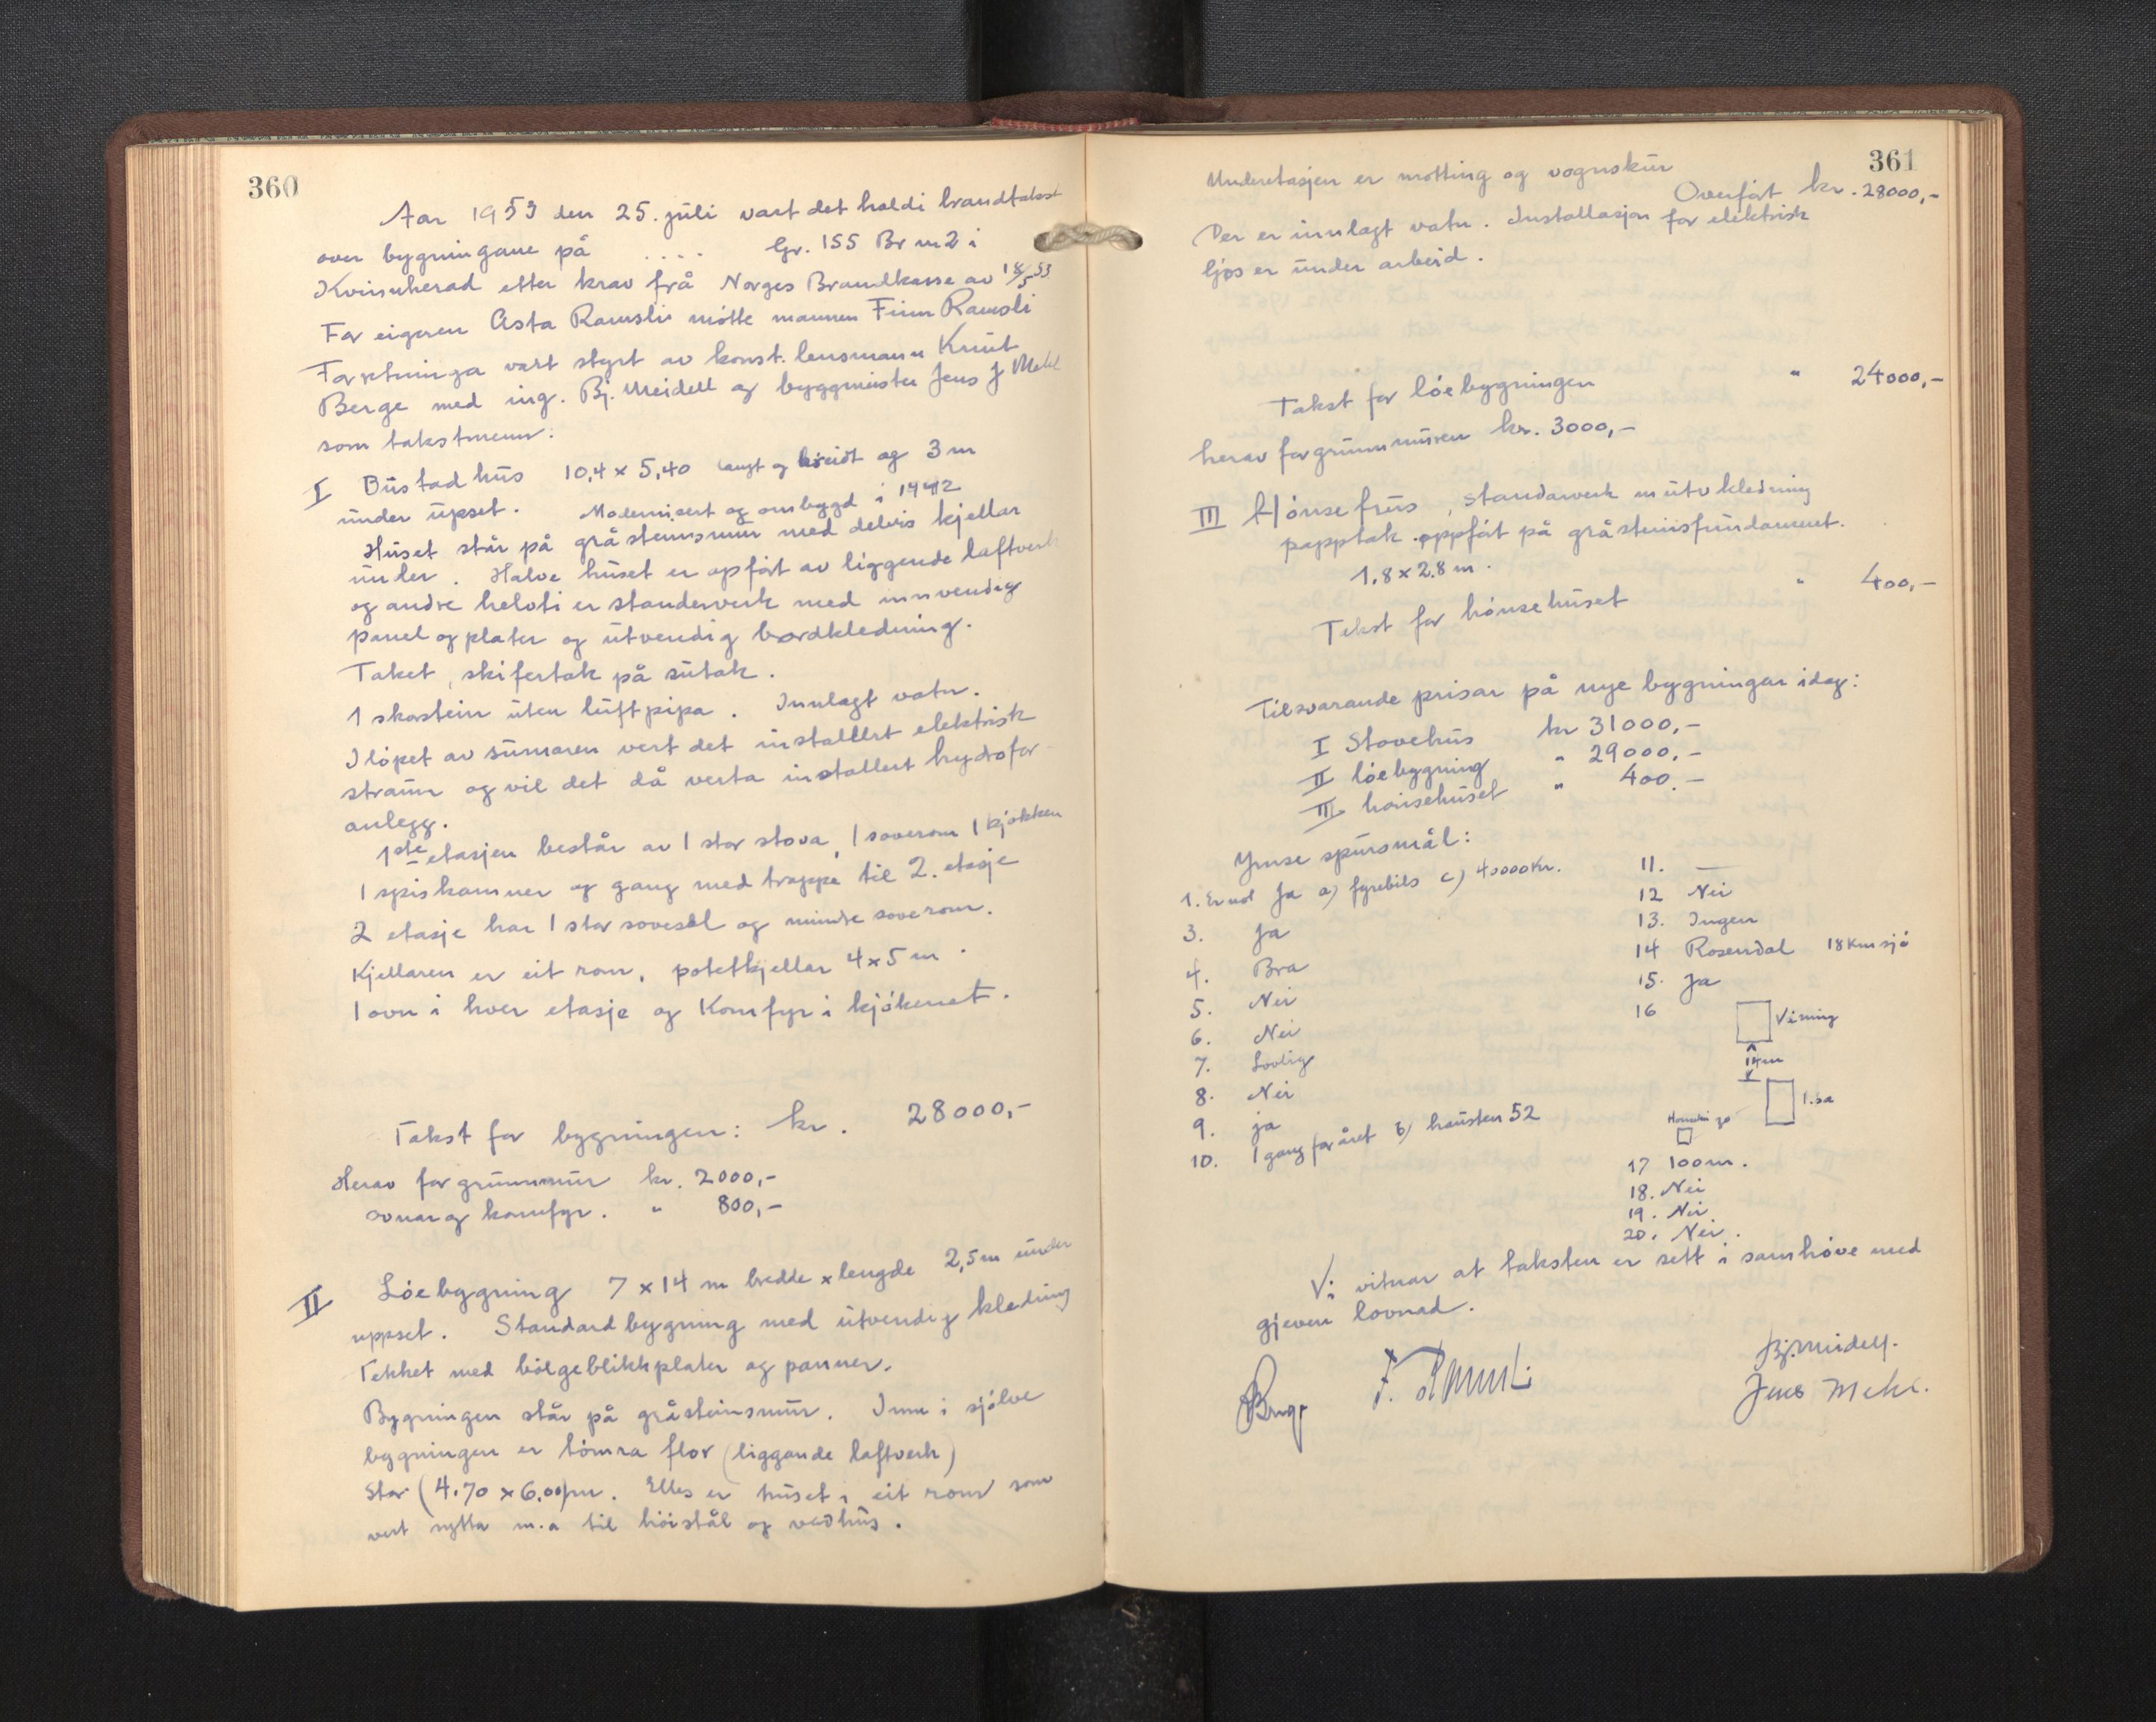 360
Aar 1953 den 25. juli vart det haldi brandtakst
over bygningane på .... Gr. 155 Br nr 2 i
Kvinnherad etter krav frå Norges Brandkasse av 18/5 53
For eigeren Asta Ramsli møtte mannen Finn Ramsli
Forretninga vart styrt av konst. lensmann Knut
Berge med ing. Bj. Meidell og byggmeister Jens J Mehl
som takstmenn.
I Bustadhus 10,4 x 5,40 langt og breidt og 3 m
under upset. Modernisert og ombygd i 1942
Huset står på gråsteinsmur med delvis kjellar
under. Halve huset er opført av liggende laftverk
og andre helvti er standerverk med innvendig
panel og plater og utvendig bordkledning.
Taket, skifertak på sutak.
1 skorstein uten luftpipa. Innlagt vatn.
I løpet av sumaren vert det installert elektrisk
straum og vil det då verta installert hydrofor
anlegg.
1ste etasjen består av 1 stor stova, 1 soverom 1 kjøkken
1 spiskammer og gang med trappe til 2. etasje
2 etasje har 1 stor sovesal og mindre soverom.
Kjellaren er eit rom, potetkjellar 4x5 m.
1 ovn i hver etasje og Komfyr i kjøkenet.
Takst for bygningen: kr. 28000,-
Herav for grunnmur kr. 2000,-
ovnar og komfyr. " 800,-
II Løebygning 7 x 14 m bredde x lengde 2,5 m under
uppset. Standardbygning med utvendig kledning
Tekket med bølgeblikkplater og panner.
Bygningen står på gråsteinsmur. Inne i sjølve
bygningen er tømra flor (liggande laftverk)
Stor (4.70 x 6.00)m. Elles er huset i eit rom som
vert nytta m.a til høistål og vedhus.
361
Underetasjen er møtting og vognskur
Overført kr. 28000,-
Der er innlagt vatn. Installasjon for elektrisk
ljos er under arbeid.
Takst for løebygningen " 24000,-
herav for grunnmuren kr. 3000,-
III Hønsehus, standarverk m utv kledning
papptak oppført på gråsteinsfundament.
1,8 x 2,8 m.
Tekst for hønsehuset " 400,-
Tilsvarande prisar på nye bygningar idag:
I Stovehus kr 31000,-
II løebygning " 29000,-
III hønsehuset " 400.-
Ymse spursmål:
1. Er nol Ja a) fyrebils c) 40000 Kr.
3. Ja
4. Bra
5. Nei
6. Nei
7. Lovlig
8. Nei
9. ja
10. 1 gang for året b) hausten 52
11. —
12 Nei
13. Ingen
14 Rosendal 18 Km sjø
15. Ja
16
Våning
14 m
Løa
17 100 m.
18. Nei
19. Nei
20. Nei.
Vi vitnar at taksten er sett i samhøve med
gjeven lovnad.
KBerge F. Ramsli Bj. Meidell.
Jens Mehl.